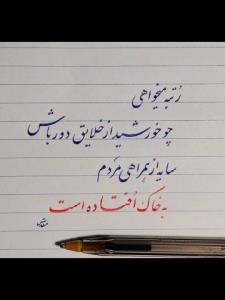 رُتبه میخواهی
چو خورشید از خلایق دور باش
سایه از همراهی مَردم
به خاک اُفتاده است